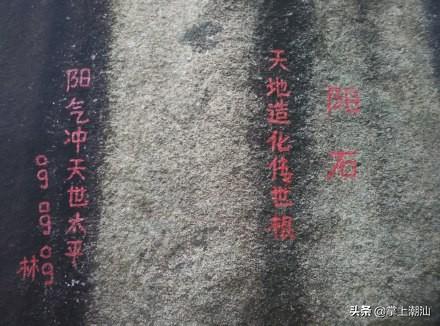 阳石
天地造化传世根
阳气冲天世太平
林
头条 @掌上潮汕